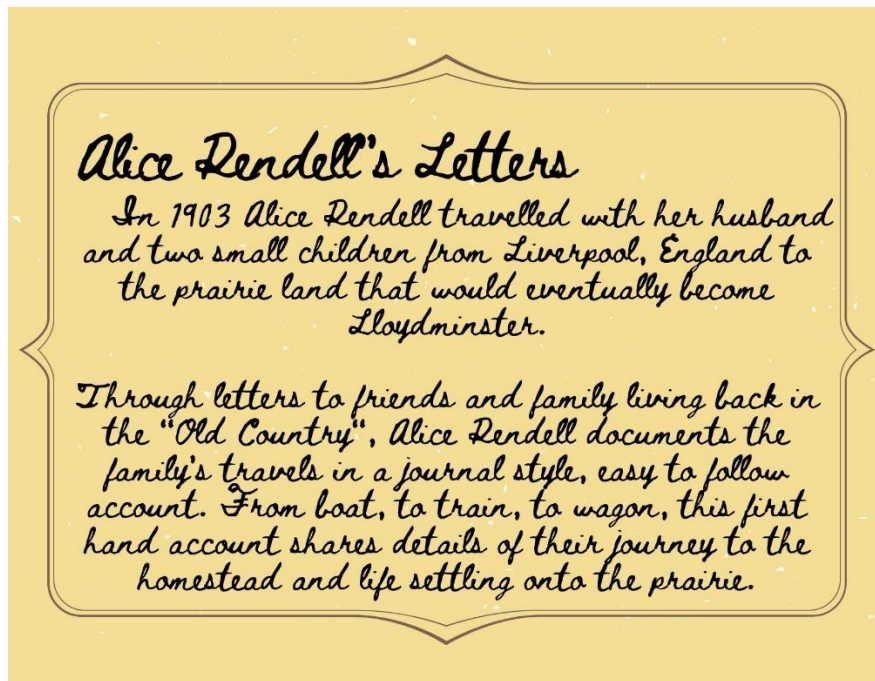 Alice Rendell's Letters
In 1903 Alice Rendell travelled with her husband
and two small children from Liverpool, England to
the prairie land that would eventually become
Lloydminster.
Through letters to friends and family living back in
the "Old Country", Alice Rendell documents the
family's travels in a journal style, easy to follow
account. From boat, to train, to wagon, this first
hand account shares details of their journey to the
homestead and life settling onto the prairie.